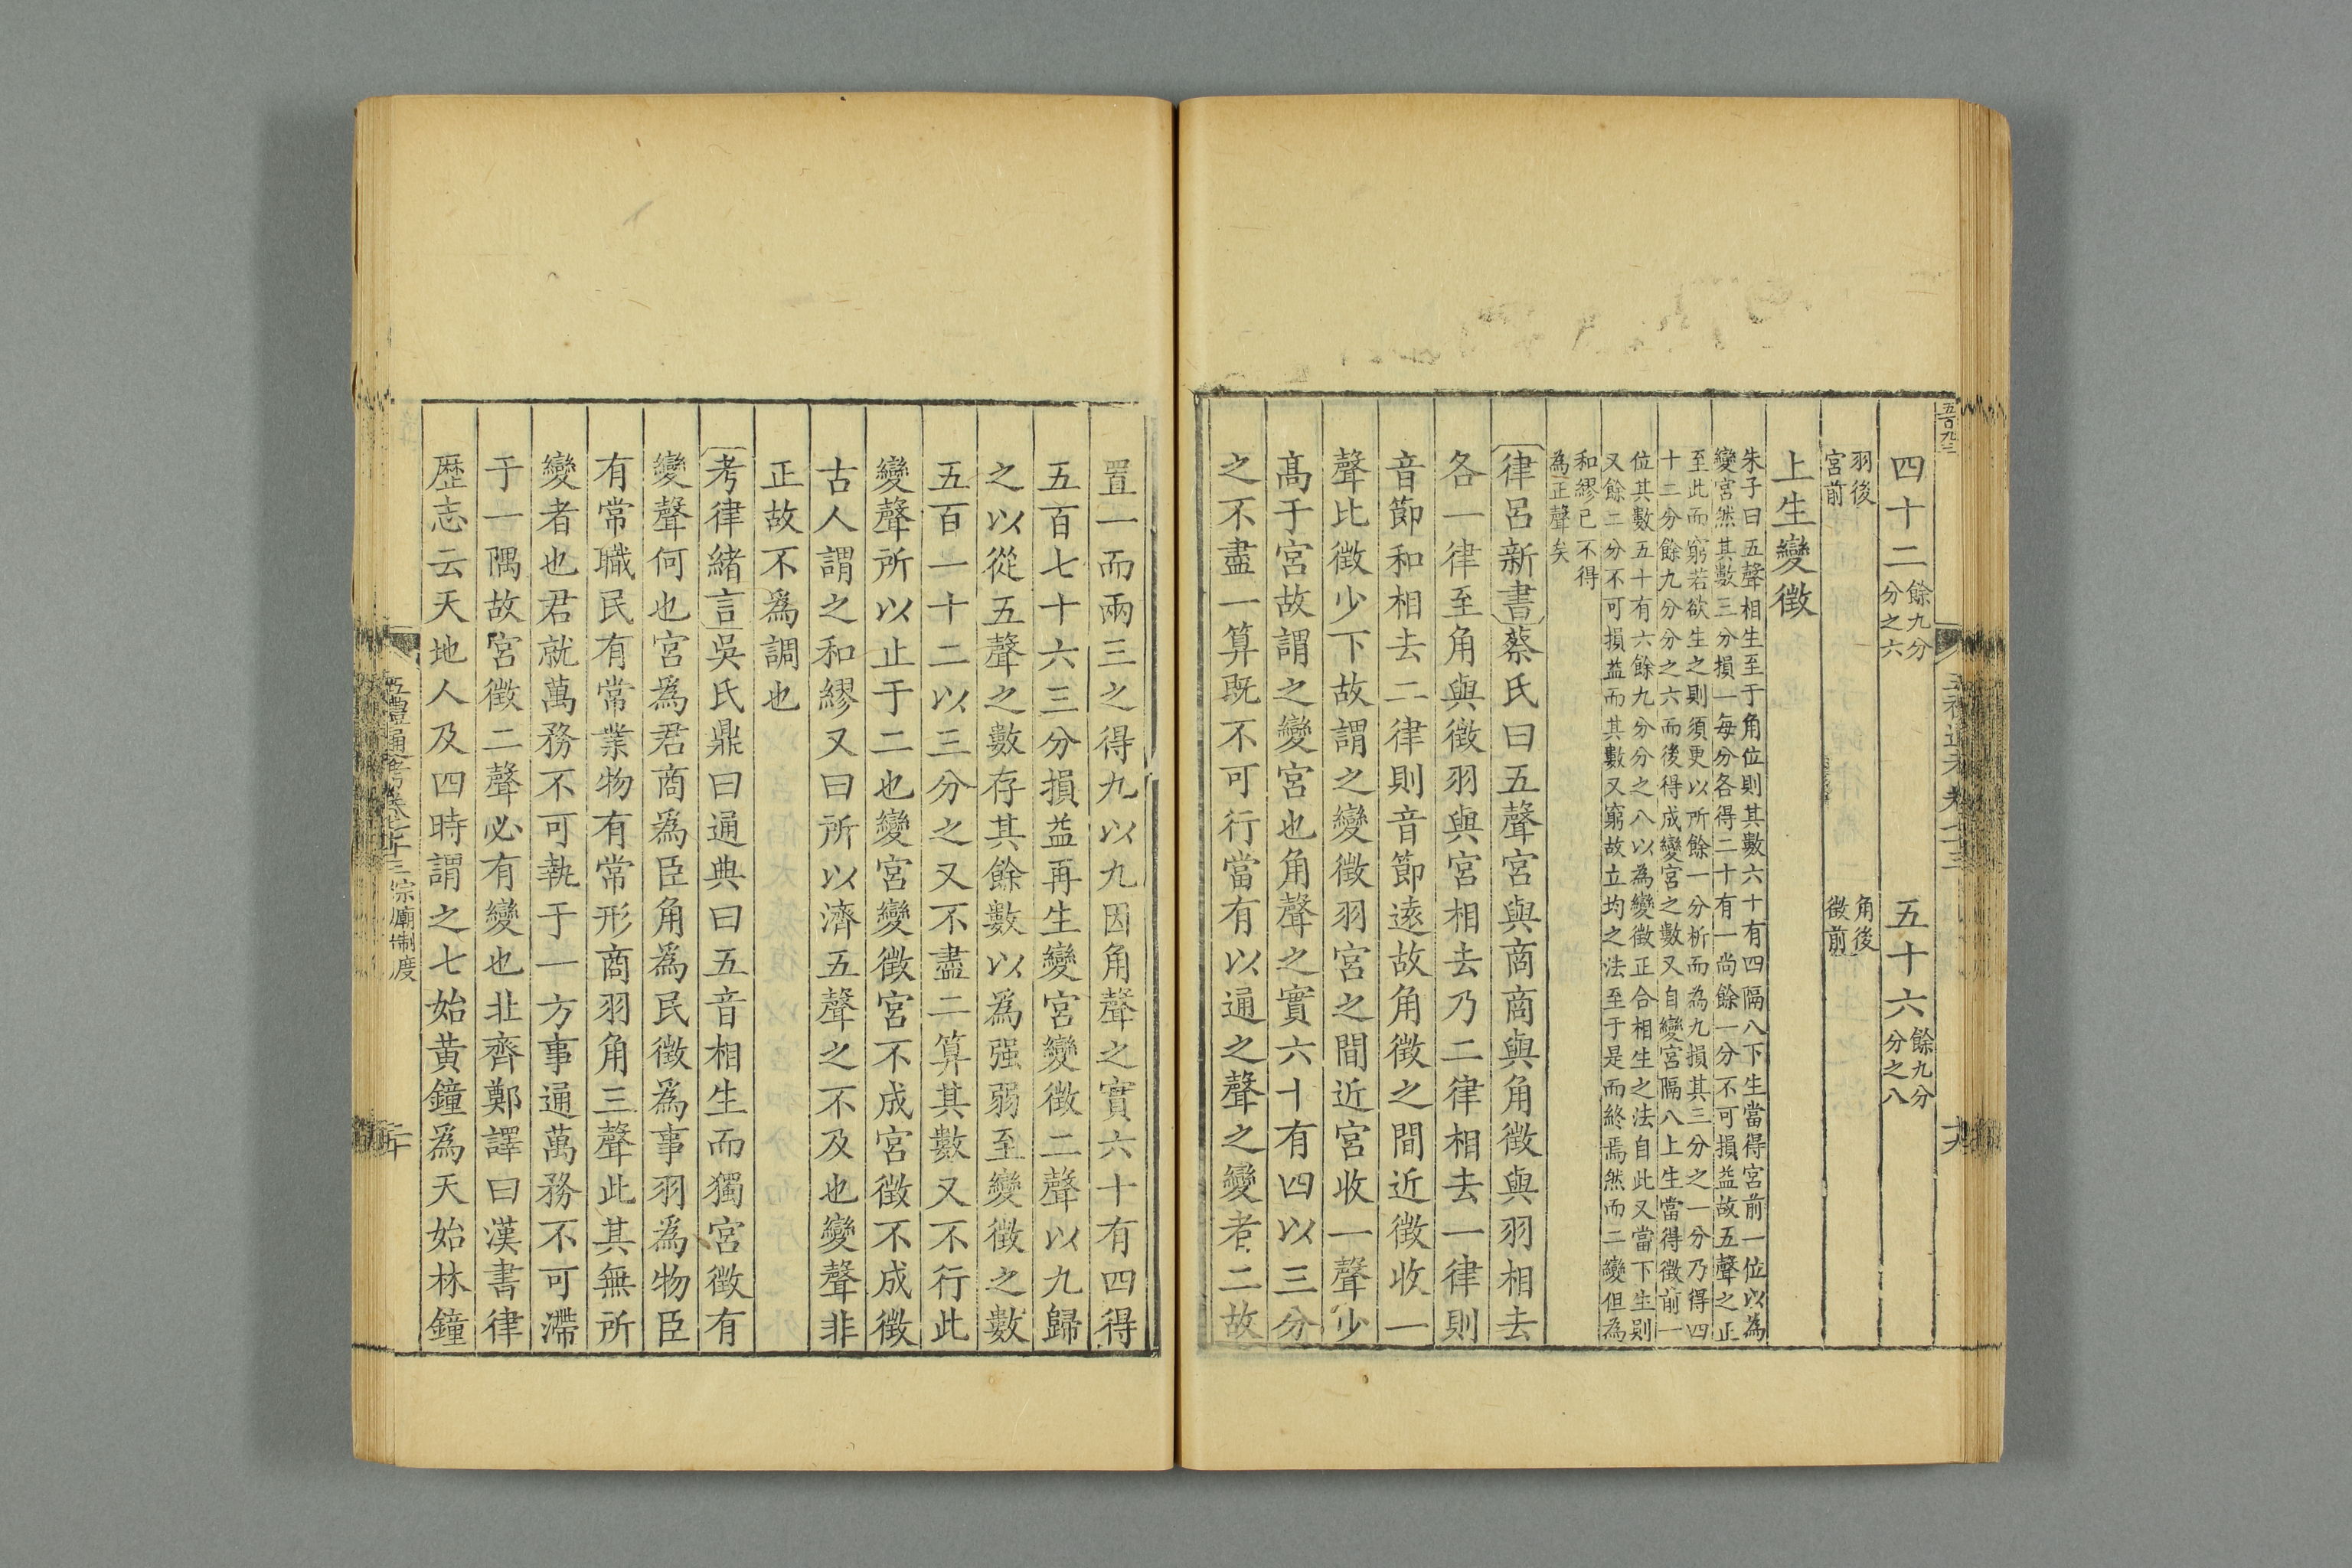 五百九三
四十二餘九分分之六 五十六餘九分分之八
羽後宮前 角後徵前
上生變徵
朱子曰五聲相生至于角位則其數六十有四隔八下生當得宮前一位以為
變宮然其數三分損一每分各得二十有一尚餘一分不可損益故五聲之正
至此而窮若欲生之則須更以所餘一分析而為九損其三分之一分乃得四
十二分餘九分分之六而後得成變宮之數又自變宮隔八上生當得徵前一
位其數五十有六餘九分分之八以為變徵正合相生之法自此又當下生則
又餘二分不可損益而其數又窮故立均之法至于是而終焉然而二變但為
和繆已不得
為正聲矣
律呂新書蔡氏曰五聲宮與商商與角徵與羽相去
各一律至角與徵羽與宮相去乃二律相去一律則
音節和相去二律則音節遠故角徵之間近徵收一
聲比徵少下故謂之變徵羽宮之間近宮收一聲少
高于宮故謂之變宮也角聲之實六十有四以三分
之不盡一算既不可行當有以通之聲之變者二故
置一而兩三之得九以九因角聲之實六十有四得
五百七十六三分損益再生變宮變徵二聲以九歸
之以從五聲之數存其餘數以為强弱至變徵之數
五百一十二以三分之又不盡二算其數又不行此
變聲所以止于二也變宮變徵宮不成宮徵不成徵
古人謂之和繆又曰所以濟五聲之不及也變聲非
正故不為調也
考律緒言吳氏鼎曰通典曰五音相生而獨宮徵有
變聲何也宮為君商為臣角為民徵為事羽為物臣
有常職民有常業物有常形商羽角三聲此其無所
變者也君就萬務不可執于一方事通萬務不可滯
于一隅故宮徵二聲必有變也北齊鄭譯曰漢書律
歷志云天地人及四時謂之七始黃鐘為天始林鐘
五禮通考卷七十三宗廟制度
二十